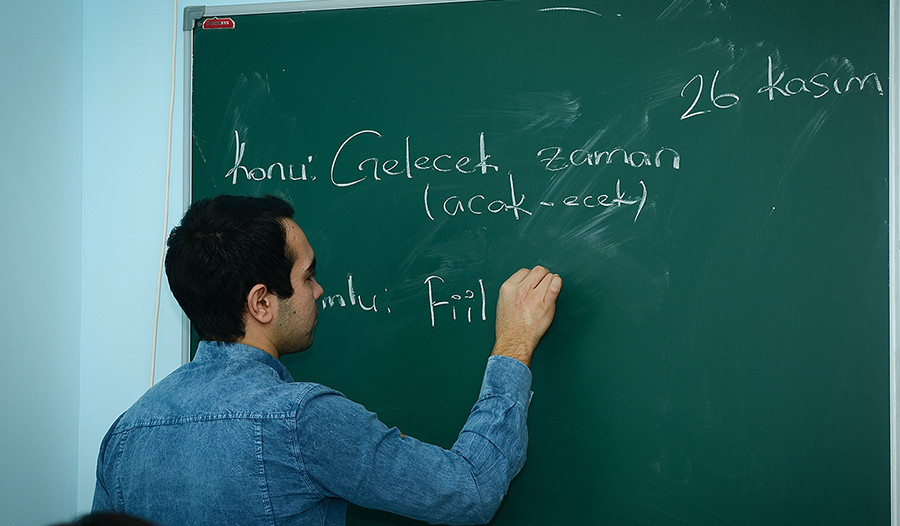 26 kasım
konu: Gelecek zaman
(acak-ecek)
mlu: Fiil